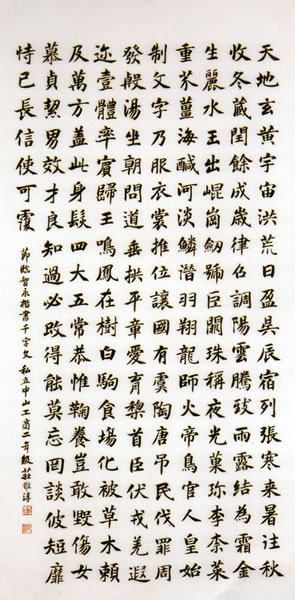 天地玄黃宇宙洪荒日盈昃辰宿列張寒來暑往秋
收冬藏閏餘成歲律呂調陽雲騰致雨露結為霜金
生麗水玉出崐崗劒號巨闕珠稱夜光菓珎李柰菜
重芥薑海鹹河淡鱗潛羽翔龍師火帝鳥官人皇始
制文字乃服衣裳推位讓國有虞陶唐吊民伐罪周
發殷湯坐朝問道垂拱平章愛育黎首臣伏戎羌遐
迩壹體率賓歸王鳴鳳在樹白駒食場化被草木賴
及萬方蓋此身髮四大五常恭惟鞠養豈敢毀傷女
慕貞絜男效才良知過必改得能莫忘罔談彼短靡
恃己長信使可覆
節臨智永楷書千字文 私立中山工商二年級莊雅